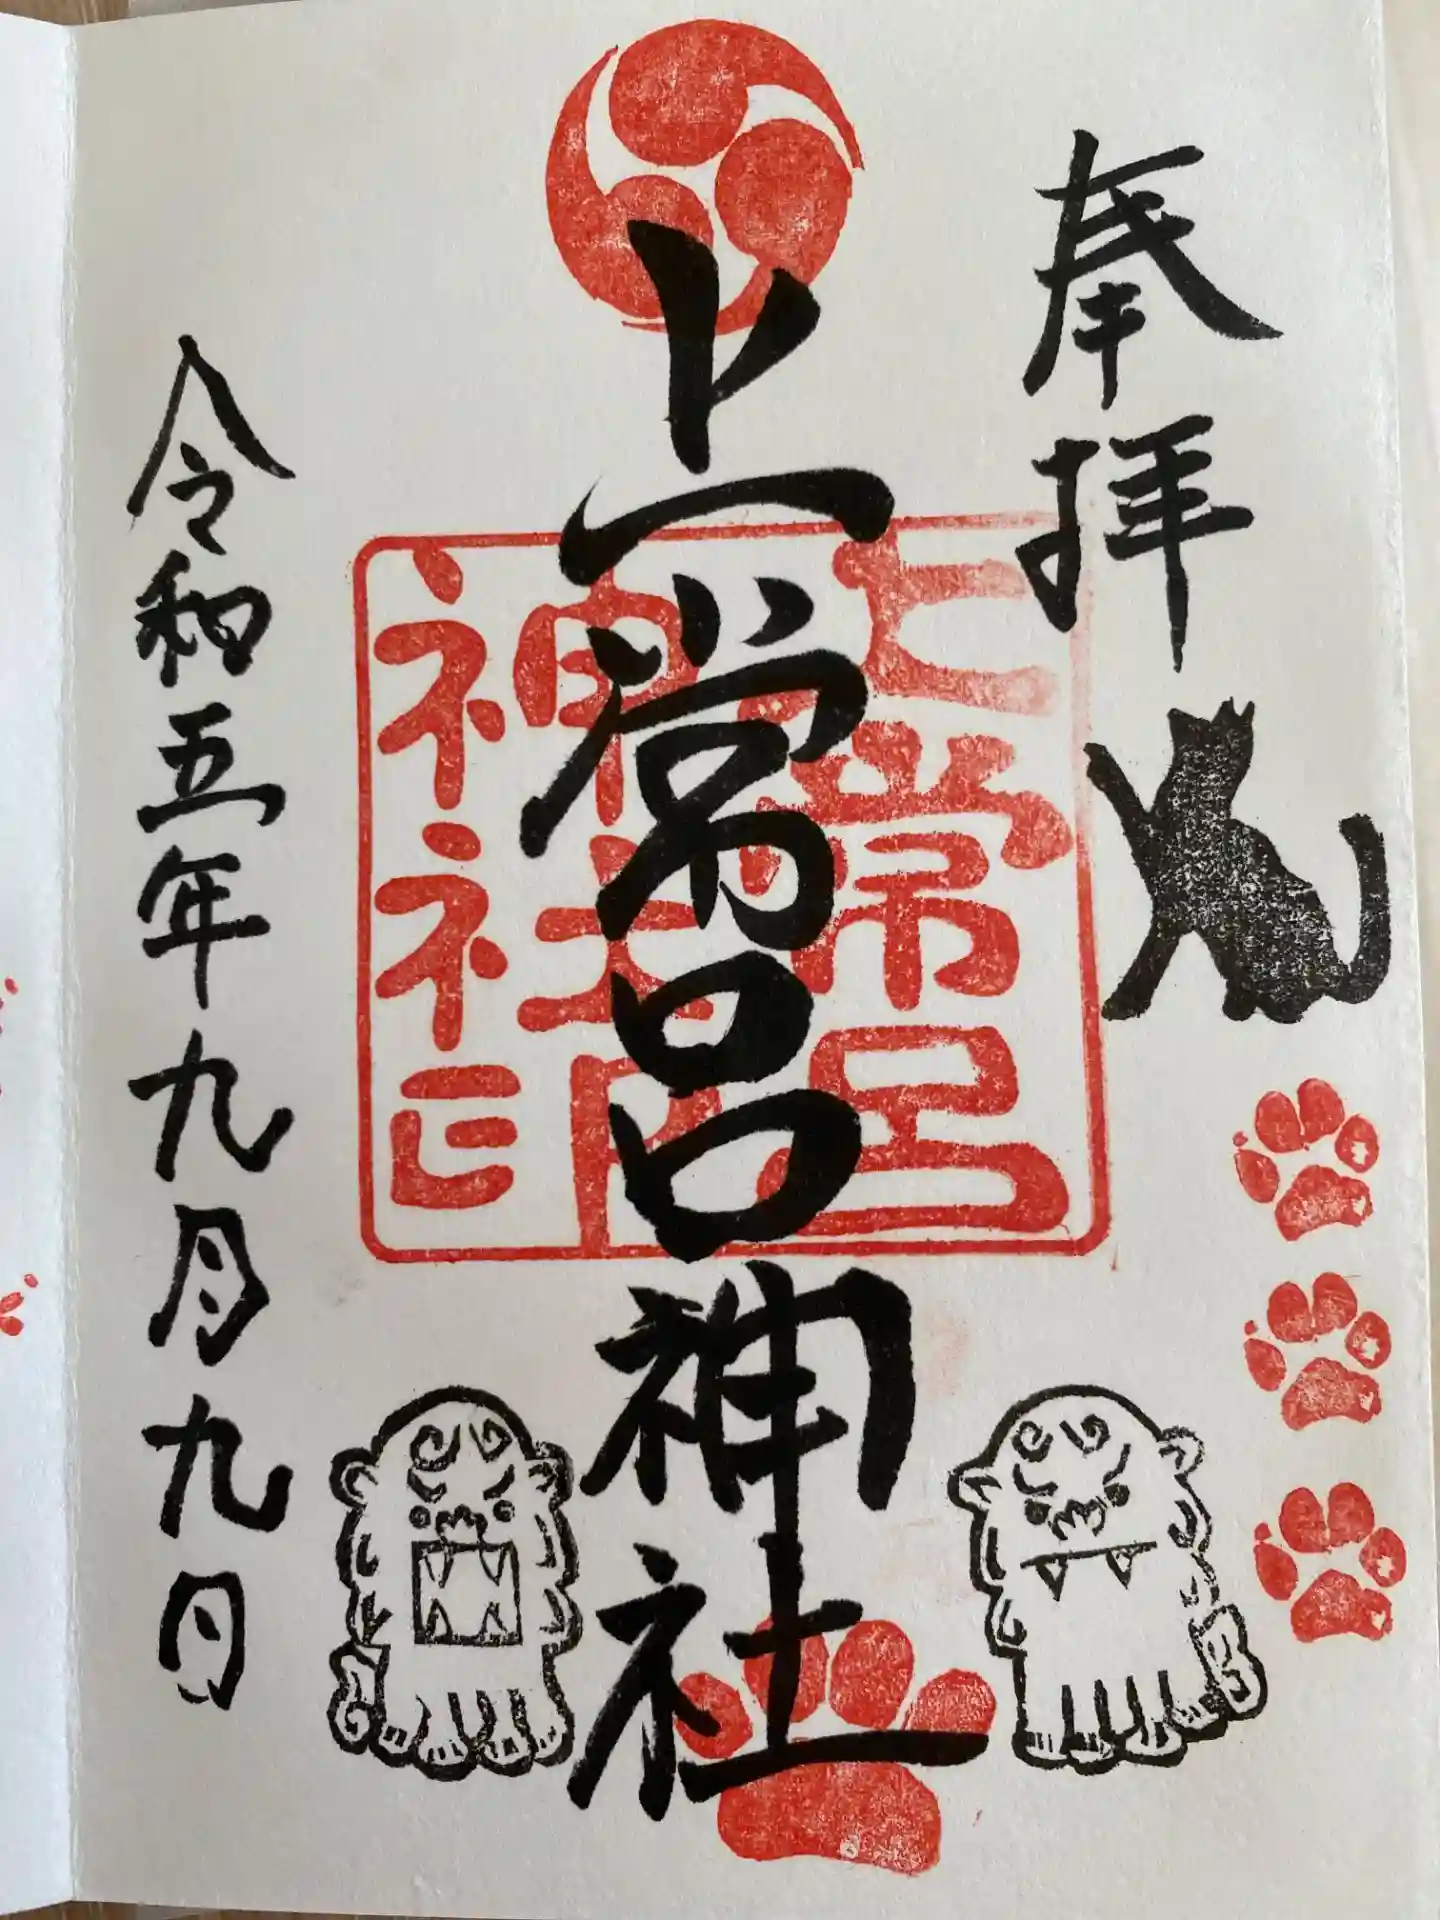 奉拝
上常呂神社
上常呂
神社
令和五年九月九日